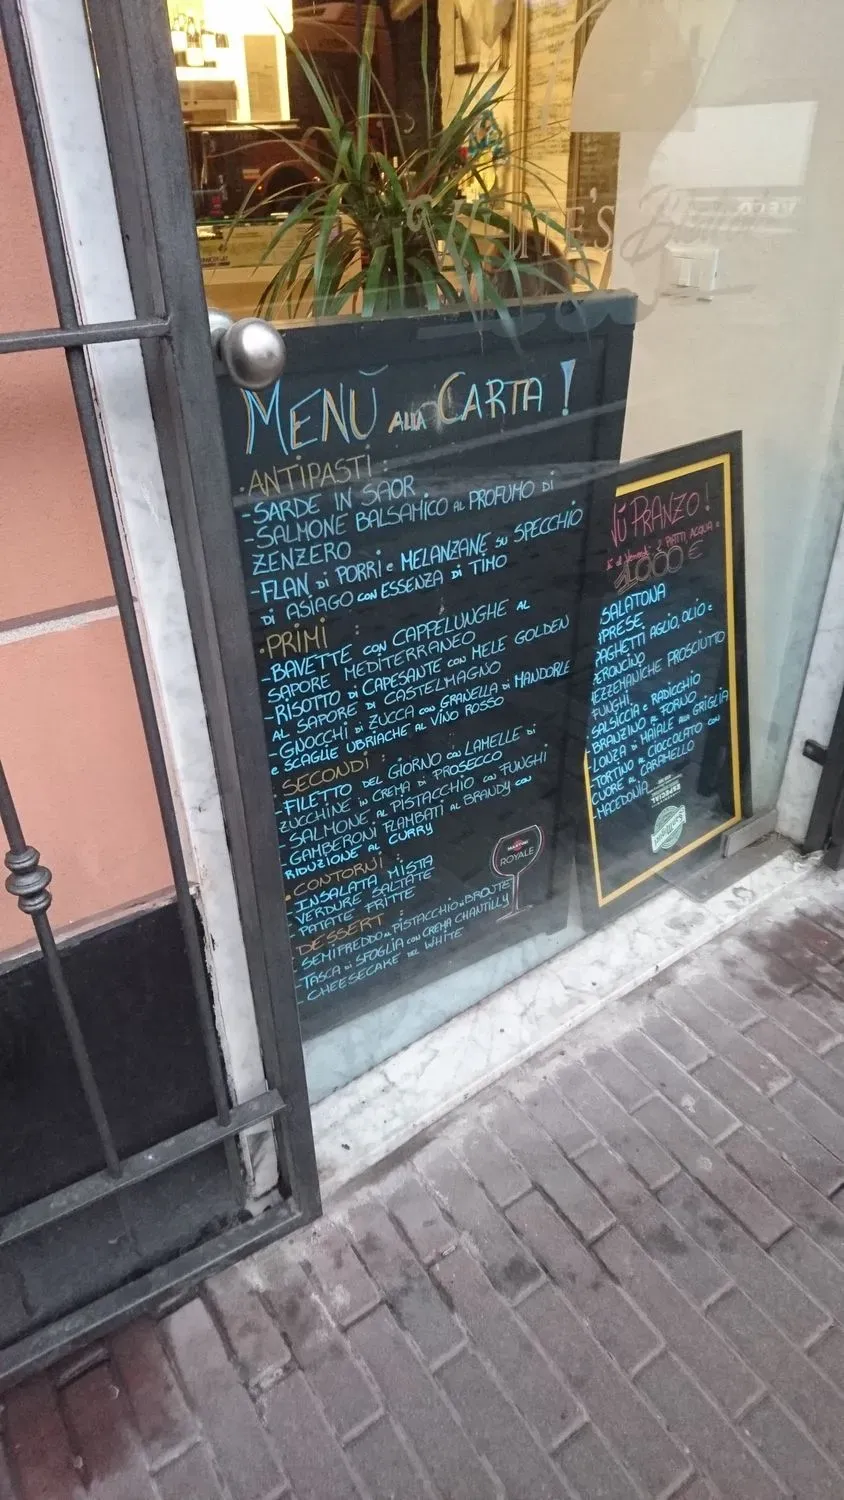 WHITE'S
MENÙ ALLA CARTA!
·ANTIPASTI:
-SARDE IN SAOR
-SALMONE BALSAMICO AL PROFUMO DI
ZENZERO
-FLAN DI PORRI e MELANZANE SU SPECCHIO
DI ASIAGO CON ESSENZA DI TIMO
·PRIMI:
-BAVETTE CON CAPPELUNGHE AL
SAPORE MEDITERRANEO
-RISOTTO DI CAPESANTE CON MELE GOLDEN
AL SAPORE DI CASTELMAGNO
-GNOCCHI DI ZUCCA CON GRANELLA DI MANDORLE
e SCAGLIE UBRIACHE AL VINO ROSSO
·SECONDI:
-FILETTO DEL GIORNO CON LAMELLE DI
ZUCCHINE IN CREMA DI PROSECCO
-SALMONE AL PISTACCHIO CON FUNGHI
-GAMBERONI FLAMBATI AL BRANDY CON
RIDUZIONE AL CURRY
·CONTORNI:
-INSALATA MISTA
-VERDURE SALTATE
-PATATE FRITTE
DESSERT:
-SEMIFREDDO AL PISTACCHIO DI BRONTE
-TASCA DI SFOGLIA CON CREMA CHANTILLY
-CHEESECAKE DEL WHITE
MARTINI
ROYALE
NÙ PRANZO!
PIATTI, ACQUA e
10,00 €
SALATONA
PRESE
AGHETTI AGLIO, OLIO e
PERONCINO
MEZZEMANICHE PROSCIUTTO
FUNGHI
SALSICCIA e RADICCHIO
-BRANZINO AL FORNO
-LONZA DI MAIALE ALLA GRIGLIA
-TORTINO AL CIOCCOLATO CON
CUORE AL CARAMELLO
-MACEDONIA
ESPECIAL